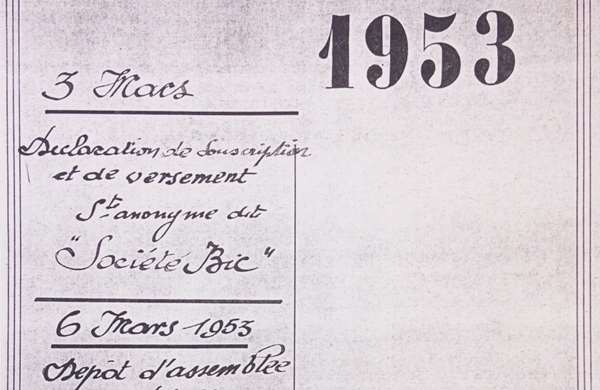 1953
3 Mars
Déclaration de souscription
et de versement
Sté anonyme dit
"Société Bic"
6 Mars 1953
Dépôt d'assemblée